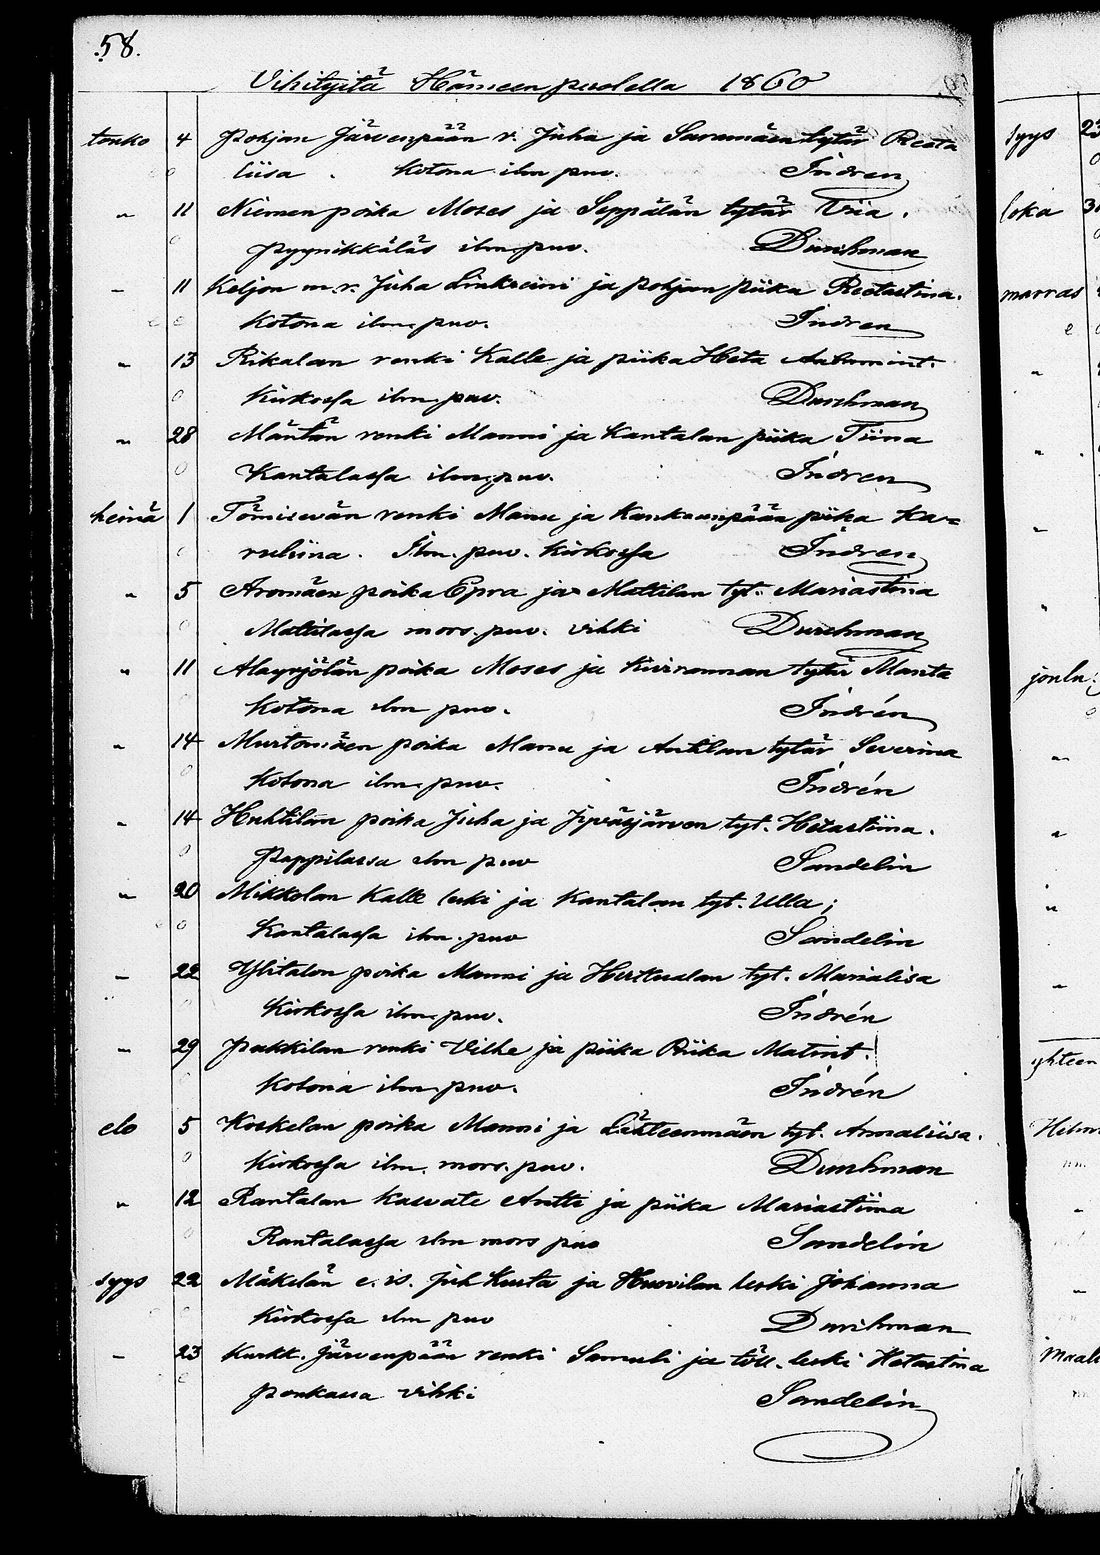 58.
Vihityitä Hämeen puolella 1860
touko 4 Pohjan Järvenpään r. Juha ja Saramäen tytär Reeta
liisa. Kotona ilm. puv. Indren
" 11 Niemen poika Moses ja Seppälän tytär Viia.
Pyynikkäläs ilm. puv. Durchman
" 11 Keljon m.r. Juha Linkreini ja pohjan piika Reetastina.
Kotona ilm. puv. Indren
" 13 Rikalan renki Kalle ja piika Heta
Kirkossa ilm. puv. Durchman
" 28 Mäntän renki Manni ja Kantalan piika Tiina
Kantalassa ilm. puv. Indren
heinä 1 Tömisevän renki Manu ja Kankaanpään piika Ka=
ruliina. Ilm. puv. Kirkossa Indren
" 5 Aromäen poika Epra ja Mattilan tyt. Mariastina
Mattilassa mors. puv. vihki Durchman
" 11 Alapöjölän poika Moses ja Kivirannan tytär Manta
Kotona ilm puv. Indrén
" 14 Murtomäen poika Manu ja Anttilan tytär Severina
Kotona ilm. puv. Indrén
" 14 Huhtilan poika Juha ja Jyväsjärven tyt. Hetastiina.
Pappilassa ilm puv Sandelin
" 20 Mikkolan Kalle leski ja Kantalan tyt. Ulla;
Kantalassa ilm. puv Sandelin
" 22 Ylitalon poika Manni ja Herkualan tyt. Marialisa
Kirkossa ilm. puv. Indrén
" 29 Pukkilan renki Vilhe ja piika Riika Matint.
Kotona ilm. puv. Indrén
elo 5 Koskelan poika Manni ja Lähteenmäen tyt. Annaliisa.
Kirkossa ilm. mors. puv. Durchman
" 12 Rantalan Kasvate Antte ja piika Mariastiina
Rantalassa ilm mors puv Sandelin
syys 22 Mäkelän e. is. Juh Kusta ja Huovilan leski Johanna
Kirkossa ilm puv Durchman
" 23 Kurkk. Järvenpään renki Samuli ja töll. leski Hetastina
Ponkassa vihki Sandelin
syys 23
loka 30
marras
joulu:
yhteen
Helm
Maali